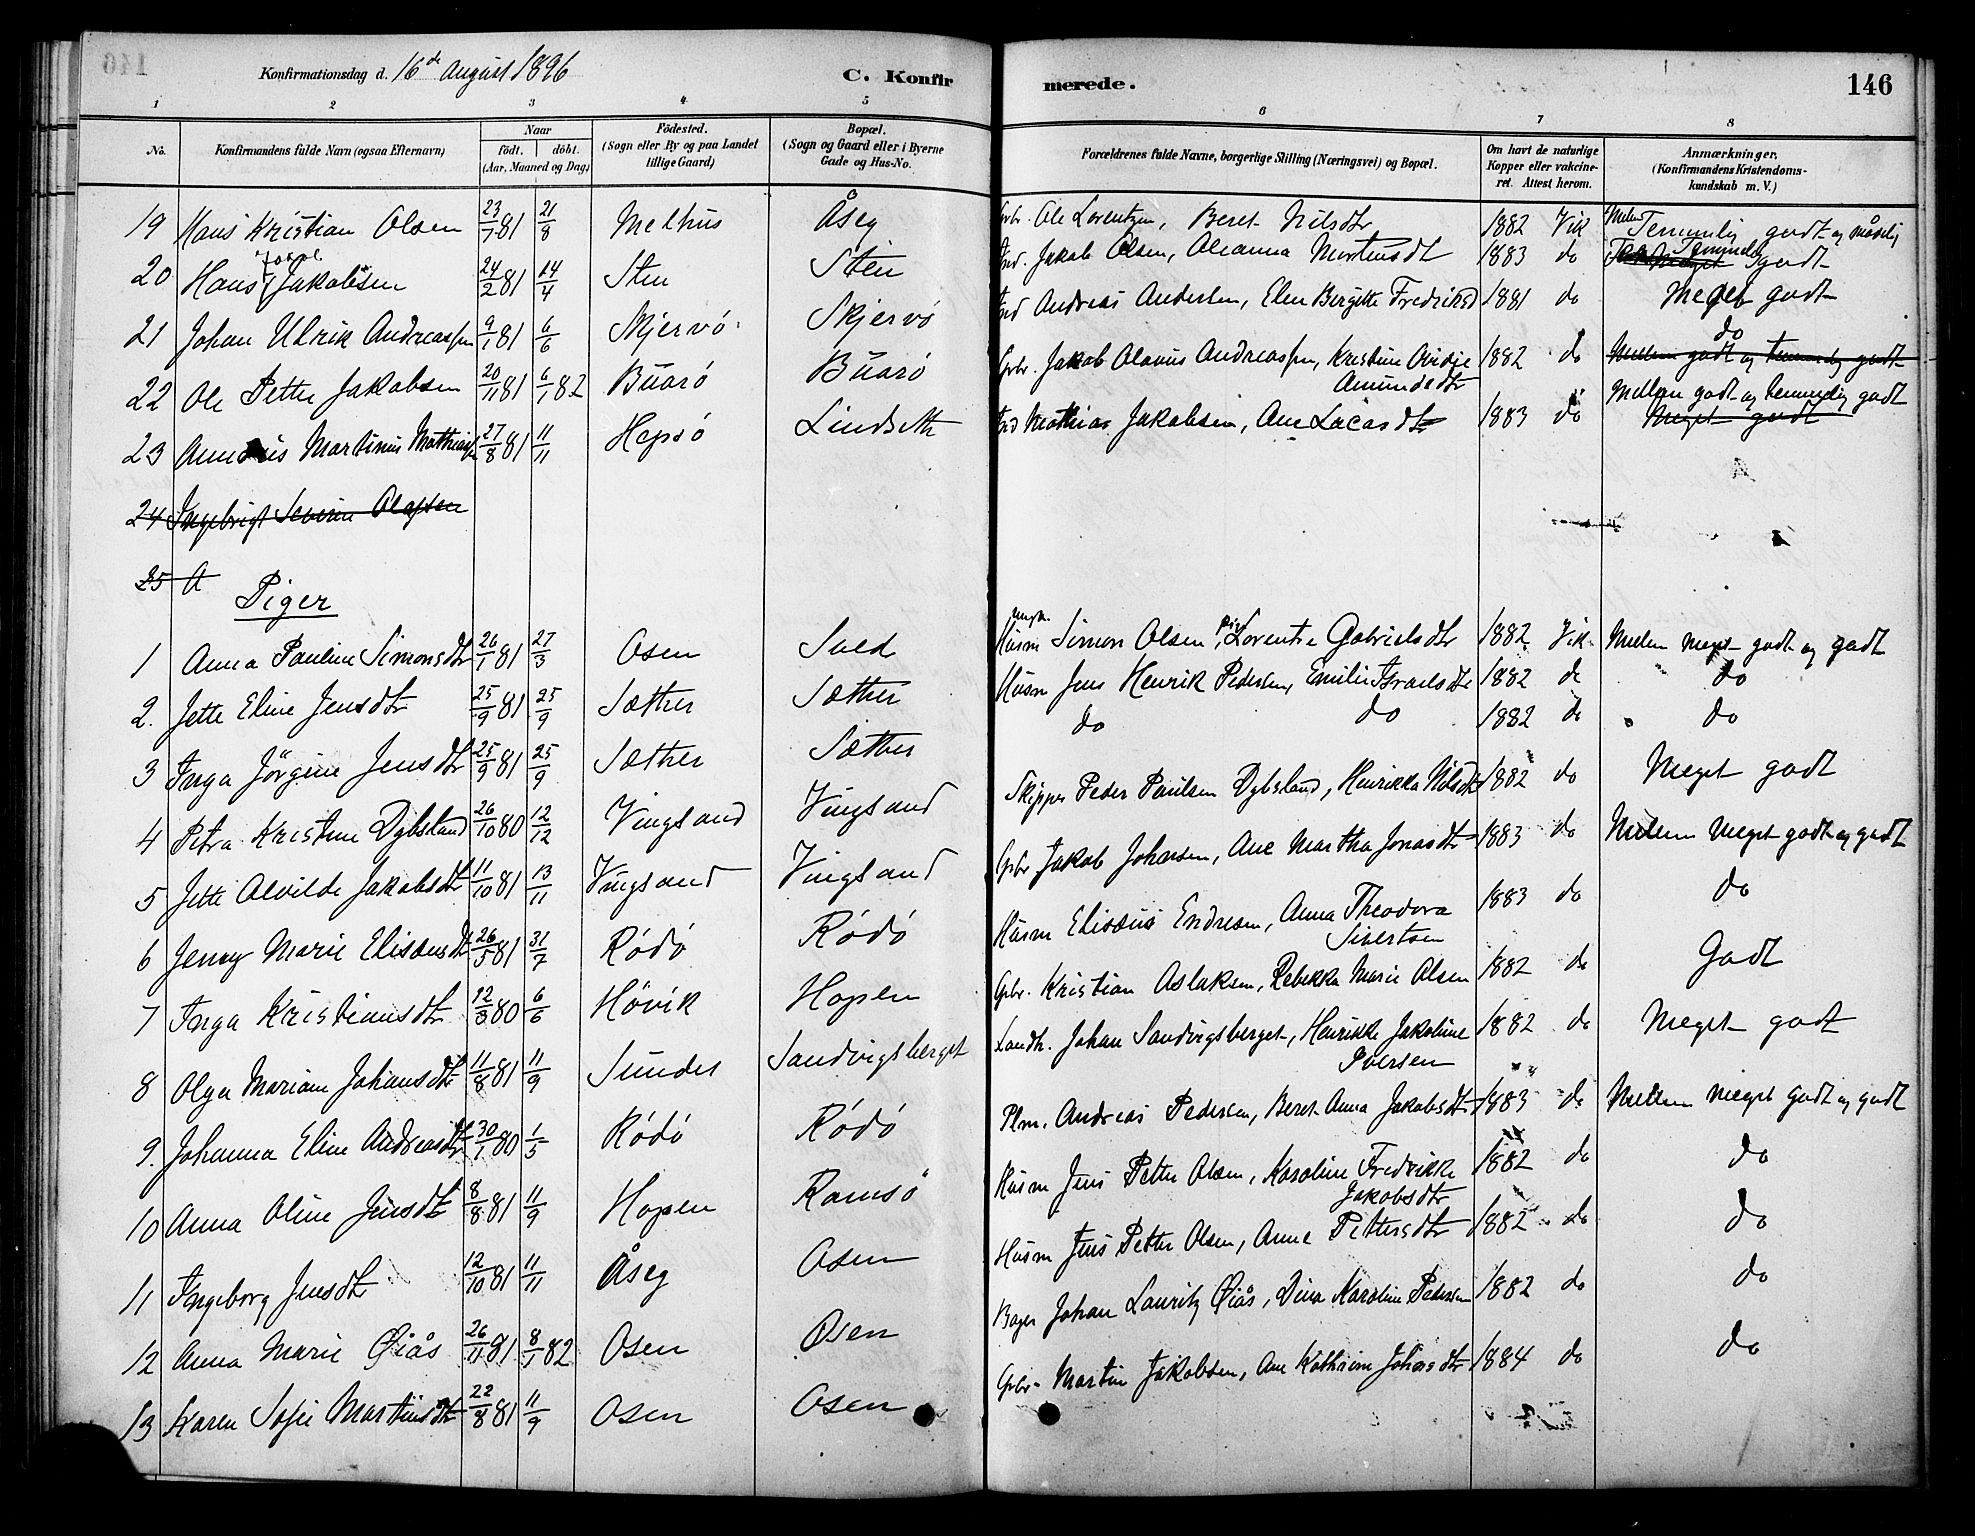 146
Konfirmationsdag d. 16de August 1896
C. Konfir
merede.
146
1 2 3 4 5 6 7 8
No.
Konfirmandens fulde Navn (ogsaa Efternavn)
Naar
födt. döbt.
(Aar, Maaned og Dag)
Födested.
(Sogn eller By og paa Landet
tillige Gaard)
Bopæl.
(Sogn og Gaard eller i Byerne
Gade og Hus-No.
Forældrenes fulde Navne, borgerlige Stilling (Næringsvei) og Bopæl.
Om havt de naturlige
Kopper eller vakcine-
ret. Attest herom.
Anmærkninger.
(Konfirmandens Kristendoms-
kundskab m. V.)
19 Hans Kristian Olsen 23/7 81 21/8 Melhus Åseg Gbr. Ole Lorentzen, Beret Nilsdtr 1882 Vik Mellem Temmelig godt og mådelig
20 Hans Jakob Jakobsen 24/2 81 14/4 Sten Sten Ind. Jakob Olsen, Oleanna Mortensdt 1883 do Temmelig godt
21 Johan Ulrik Andreassen 9/1 81 6/6 Skjervö Skjervö Ind Andreas Andersen, Elen Birgitte Fredriksd 1881 do Meget godt
22 Ole Petter Jakobsen 20/11 81 6/1 82 Buarö Buarö Gbr. Jakob Olavus Andreassen, Kristine Ovidie Amundsdtr 1882 do do
Mellem godt og temmelig godt
23 Martinus Mathiassen 27/8 81 11/11 Hepsö Lindseth Ind Mathias Jakobsen, Ane Lucasdtr 1883 do Mellem godt og temmelig godt
Meget godt
24 Ingebrigt Severin Olafsen
25 A
Piger
1 Anna Pauline Simonsdtr 26/1 81 27/3 Osen Sved Husm ungk. Simon Olsen, pige Lorentse Gabrielsdtr 1882 Vik Mellem Meget godt og godt
2. Jette Eline Jensdtr 25/9 81 25/9 Sæther Sæther Husm Jens Henrik Pedersen, Emilie Israelsdtr 1882 do do
3 Inga Jörgine Jensdtr 25/9 81 25/9 Sæther Sæther do do 1882 do do
4 Petra Kristine Dybsland 26/10 80 12/12 Vingsand Vingsand Skipper Peder Paulsen Dybsland, Henrikka Nilsdtr 1882 do Meget godt
5 Jette Alvilde Jakobsdtr 11/10 81 13/11 Vingsand Vingsand Gbr Jakob Johnsen, Ane Martha Jonasdtr 1883 do Mellem Meget godt og godt
6 Jenny Marie Elisæusdtr 26/5 81 31/7 Rödö Rödö Husm Elisæus Endresen, Anna Theodora Sivertsen 1883 do do
7 Inga Kristiansdtr 12/3 80 6/6 Hövik Hopen Gbr. Kristian Aslaksen, Rebekka Marie Olsen 1882 do Godt
8 Olga Mariane Johansdtr 11/8 81 11/9 Sundet Sandvigsberget Landh. Johan Sandvigsberget, Henrikke Jakobine Iversen 1882 do Meget godt
9. Johanna Eline Andreasdtr 30/1 80 1/5 Rödö Rödö Plm. Andreas Pedersen, Beret Anna Jakobsdtr 1883 do Mellem meget godt og godt
10 Anna Oline Jensdtr 8/8 81 11/9 Hopen Ramsö Husm Jens Petter Olsen, Karoline Fredrikke Jakobsdtr 1882 do do
11 Ingeborg Jensdtr 12/10 81 11/11 Åseg Osen Husm Jens Petter Olsen, Anne Pettersdtr 1882 do do
12 Anna Marie Øiås 26/11 81 8/1 82 Osen Osen Bager Johan Lauritz Øiås, Dina Karoline Pedersen 1882 do do
13 Karen Sofie Martinsdtr 22/8 81 11/9 Osen Osen Gbr. Martin Jakobsen, Ane Kathrine Johansdtr 1884 do do